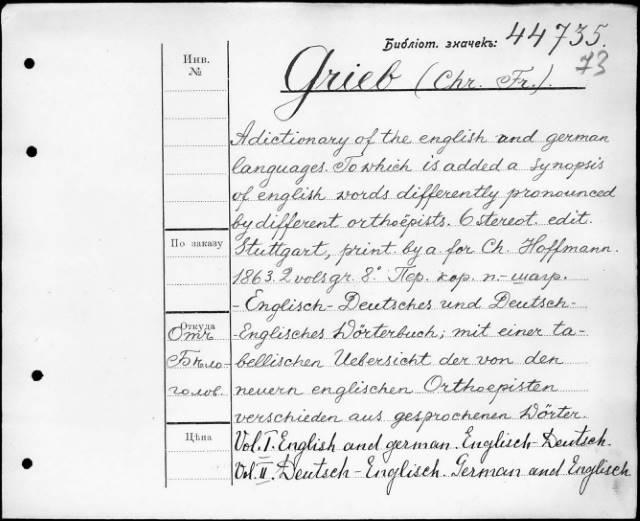 Библіот. значекъ: 44735.
73
Инв.
№
Grieb (Chr. Fr.).
A dictionary of the english and german
languages. To which is added a synopsis
of english words differently pronounced
by different orthoëpists. 6 stereot. edit.
По заказу
Stuttgart, print. by a. for Ch. Hoffmann.
1863. 2 vols gr. 8° Пер. кор. п.-шагр.
- Englisch-Deutsches und Deutsch-
Откуда
Отъ
Бѣло-
голов.
-Englisches Wörterbuch; mit einer ta-
bellischen Uebersicht der von den
neuern englischen Orthoepisten
verschieden aus gesprochenen Wörter.
Цѣна
Vol. I. English and german. Englisch-Deutsch.
Vol. II. Deutsch-Englisch. German and Englisch